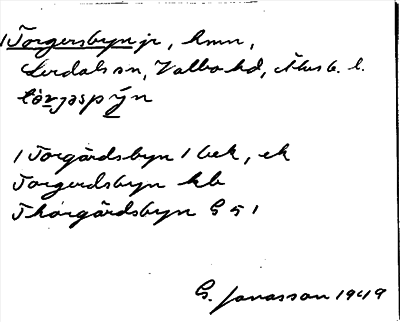 1 Torgersbyn jr, hmn,
Lerdals sn, Valbo hd, Älvsb. l.
tòrjəspýn
1 Torgårdsbyn 1 bek, ek
Torgerdsbyn kb
Thorgårdsbyn G 5 1
G. Jonasson 1949